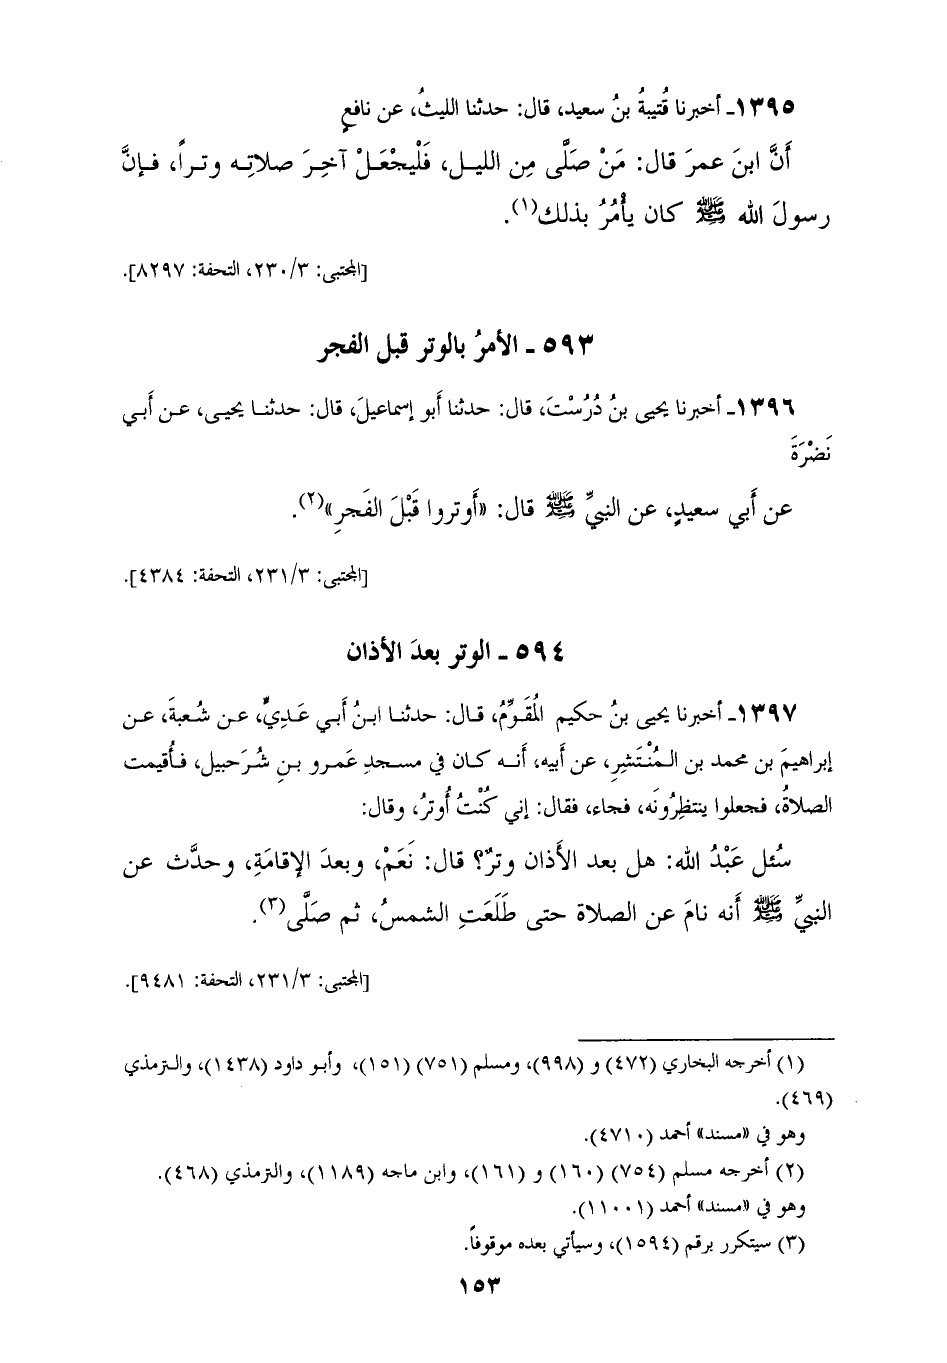 ١٣٩٥ـ أخبرنا قُتيبةُ بنُ سعيد، قال: حدثنا الليثُ، عن نافعٍ
أَنَّ ابنَ عمرَ قال: مَنْ صَلَّى مِن الليل، فَلْيجْعَلْ آخِرَ صلاتِه وتراً، فإنَّ
رسولَ الله ﷺ كان يأْمُرُ بذلك(١).
[المجتبى: ٢٣٠/٣، التحفة: ٨٢٩٧].
٥٩٣ ـ الأمرُ بالوتر قبل الفجر
١٣٩٦ـ أخبرنا يحيى بنُ دُرُسْتَ، قال: حدثنا أَبو إسماعيلَ، قال: حدثنا يحيى، عن أَبي
نَضْرَةَ
عن أَبي سعيدٍ، عن النبيِّ ﷺ قال: «أَوتروا قَبْلَ الفَجرِ»(٢).
[المجتبى: ٢٣١/٣، التحفة: ٤٣٨٤].
٥٩٤ ـ الوتر بعدَ الأذان
١٣٩٧ـ أخبرنا يحيى بنُ حكيم المُقَوِّمُ، قال: حدثنا ابنُ أَبي عَدِيٍّ، عن شُعبةَ، عن
إبراهيمَ بن محمد بن المُنْتَشِرِ، عن أَبيه، أَنه كان في مسجدِ عَمرو بنِ شُرَحبيل، فأُقيمت
الصلاةُ، فجعلوا ينتظِرُونَه، فجاء، فقال: إني كُنْتُ أُوتِرُ، وقال:
سُئل عَبْدُ الله: هل بعد الأَذان وترٌ؟ قال: نَعَمْ، وبعدَ الإقامَةِ، وحدَّث عن
النبيِّ ﷺ أَنه نامَ عن الصلاة حتى طَلَعَتِ الشمسُ، ثم صَلَّى(٣).
[المجتبى: ٢٣١/٣، التحفة: ٩٤٨١].
(١) أخرجه البخاري (٤٧٢) و (٩٩٨)، ومسلم (٧٥١) (١٥١)، وأبو داود (١٤٣٨)، والترمذي
(٤٦٩).
وهو في «مسند» أحمد (٤٧١٠).
(٢) أخرجه مسلم (٧٥٤) (١٦٠) و (١٦١)، وابن ماجه (١١٨٩)، والترمذي (٤٦٨).
وهو في «مسند» أحمد (١١٠٠١).
(٣) سيتكرر برقم (١٥٩٤)، وسيأتي بعده موقوفاً.
١٥٣